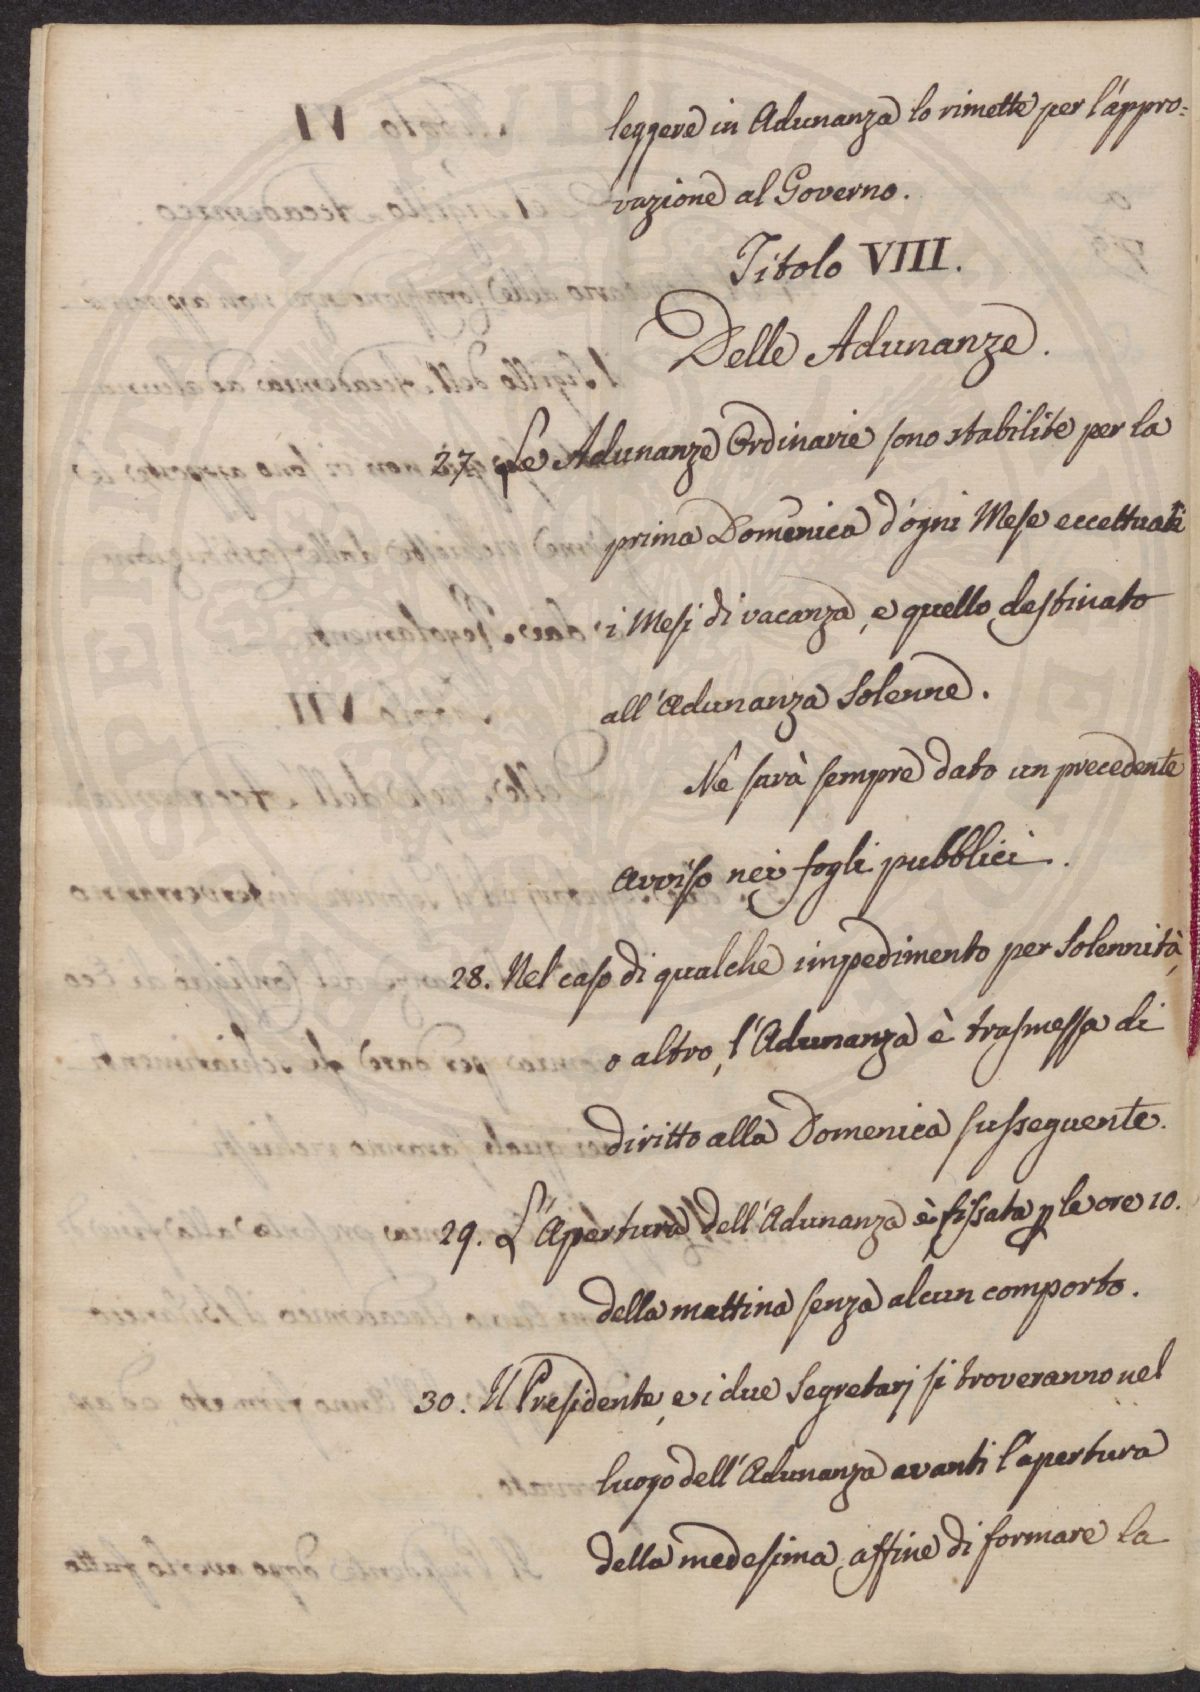 leggere in Adunanza lo rimette per l'appro=
vazione al Governo.
Titolo VIII.
Delle Adunanze.
27. Le Adunanze Ordinarie sono stabilite per la
prima Domenica d'ogni Mese eccettuati
i Mesi di vacanza, e quello destinato
all'Adunanza Solenne.
Ne sarà sempre dato un precedente
avviso nei fogli pubblici.
28. Nel caso di qualche impedimento per Solennità,
o altro, l'Adunanza è trasmessa di
diritto alla Domenica susseguente.
29. L'Apertura dell'Adunanza è fissata p le ore 10.
della mattina senza alcun comporto.
30. Il Presidente, e i due Segretarj si troveranno nel
luogo dell'Adunanza avanti l'apertura
della medesima affine di formare la